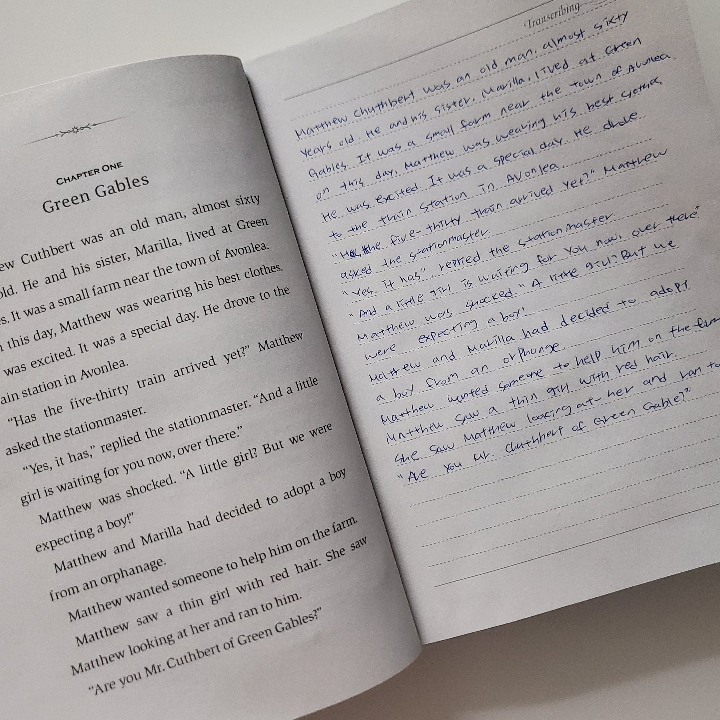 CHAPTER ONE
Green Gables
ew Cuthbert was an old man, almost sixty
old. He and his sister, Marilla, lived at Green
s. It was a small farm near the town of Avonlea.
this day, Matthew was wearing his best clothes.
was excited. It was a special day. He drove to the
ain station in Avonlea.
"Has the five-thirty train arrived yet?" Matthew
asked the stationmaster.
"Yes, it has," replied the stationmaster. "And a little
girl is waiting for you now, over there."
Matthew was shocked. "A little girl? But we were
expecting a boy!"
Matthew and Marilla had decided to adopt a boy
from an orphanage.
Matthew wanted someone to help him on the farm.
Matthew saw a thin girl with red hair. She saw
Matthew looking at her and ran to him.
"Are you Mr. Cuthbert of Green Gables?"
Transcribing
Matthew Chuthbert was an old man, almost sixty
years old. He and his sister, Marilla, lived at Green
Gables. It was a small farm near the town of Avonlea
on this day, Matthew was wearing his best clothes,
He was excited. It was a special day. He drove
to the train station in Avonlea.
the five-thirty train arrived yet?" Matthew
asked the stationmaster
"Yes, it has," replied the stationmaster
"And a little girl is waiting for you now, over there"
Matthew was shocked. "A little girl? But we
were expecting a boy!
Matthew and Marilla had decided to adopt
a boy from an orphange.
Matthew wanted someone to help him on the farm
Matthew saw a thin girl with red hair.
She saw Matthew looking at her and ran to
"Are you Mr. Cuthbert of Green Gable?"